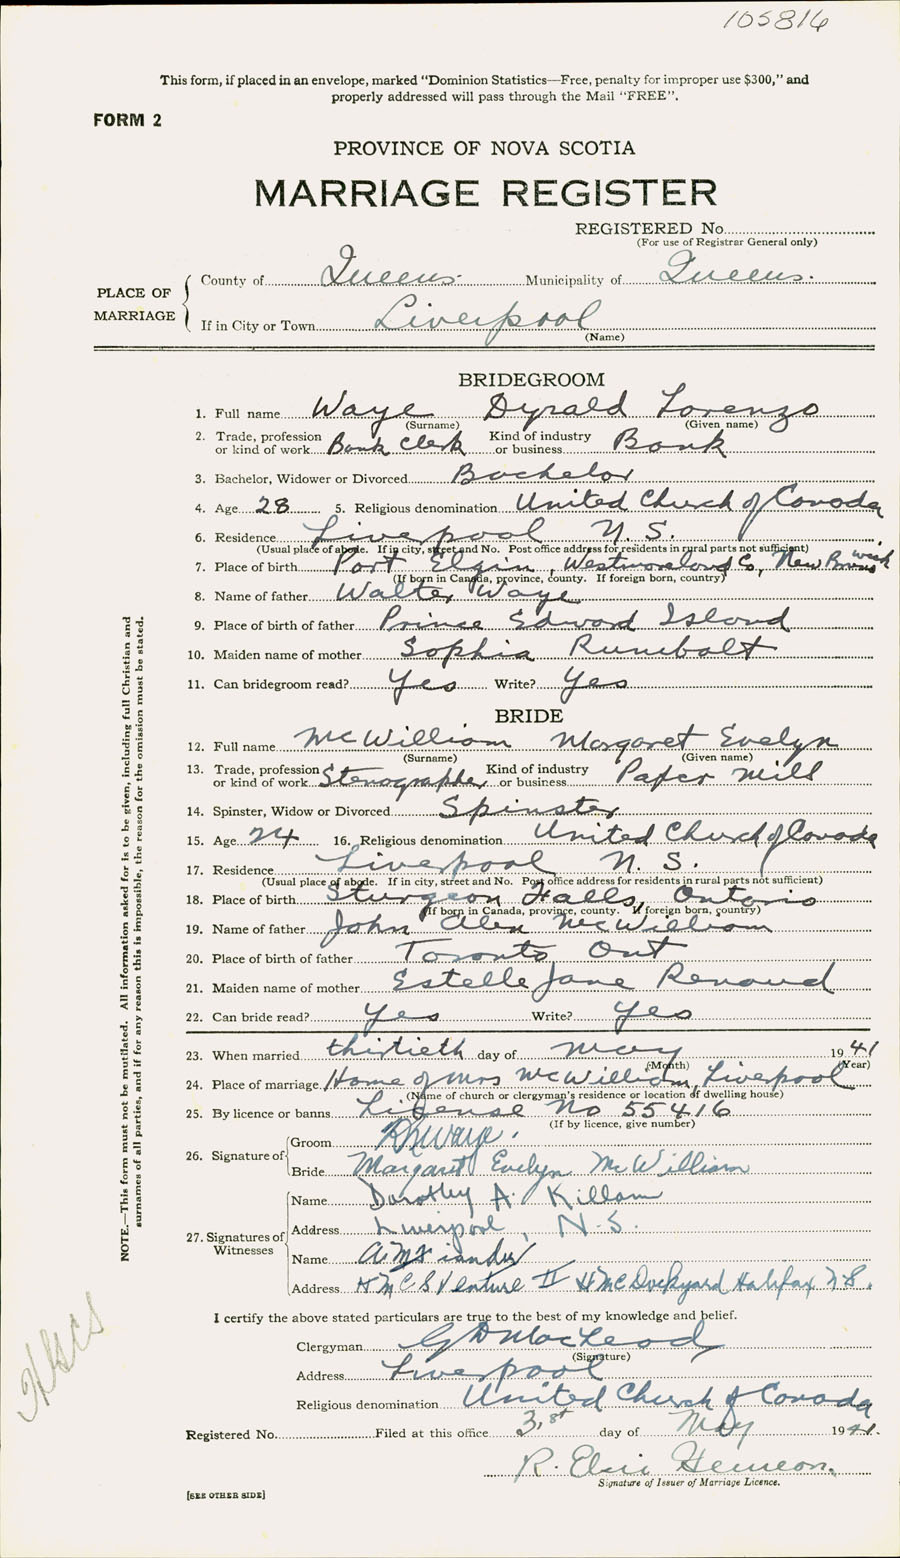 105816
This form, if placed in an envelope, marked "Dominion Statistics—Free, penalty for improper use $300," and
properly addressed will pass through the Mail "FREE".
FORM 2
PROVINCE OF NOVA SCOTIA
MARRIAGE REGISTER
REGISTERED No.
(For use of Registrar General only)
PLACE OF MARRIAGE
County of Queens. Municipality of Queens.
If in City or Town Liverpool
(Name)
BRIDEGROOM
1. Full name Waye Dyrald Lorenzo
(Surname) (Given name)
2. Trade, profession or kind of work Bank Clerk Kind of industry or business Bank
3. Bachelor, Widower or Divorced Bachelor
4. Age 28 5. Religious denomination United Church of Canada
6. Residence Liverpool N.S.
(Usual place of abode. If in city, street and No. Post office address for residents in rural parts not sufficient)
7. Place of birth Port Elgin, Westmoreland Co, New Brunswick
(If born in Canada, province, county. If foreign born, country)
8. Name of father Walter Waye
9. Place of birth of father Prince Edward Island
10. Maiden name of mother Sophia Rumbolt
11. Can bridegroom read? Yes Write? Yes
BRIDE
12. Full name McWilliam Margaret Evelyn
(Surname) (Given name)
13. Trade, profession or kind of work Stenographer Kind of industry or business Paper Mill
14. Spinster, Widow or Divorced Spinster
15. Age 24 16. Religious denomination United Church of Canada
17. Residence Liverpool N.S.
(Usual place of abode. If in city, street and No. Post office address for residents in rural parts not sufficient)
18. Place of birth Sturgeon Falls, Ontario
(If born in Canada, province, county. If foreign born, country)
19. Name of father John Alen McWilliam
20. Place of birth of father Toronto Ont
21. Maiden name of mother Estelle Jane Renaud
22. Can bride read? Yes Write? Yes
23. When married thirtieth day of May 1941
(Month) (Year)
24. Place of marriage Home of Mrs McWilliam, Liverpool
(Name of church or clergyman's residence or location of dwelling house)
25. By licence or banns License No 55416
(If by licence, give number)
26. Signature of Groom Waye.
Bride Margaret Evelyn McWilliam
27. Signatures of Witnesses
Name Dorothy A. Killam
Address Liverpool, N.S.
Name
Address HMCS Venture II HMC Dockyard Halifax N.S.
I certify the above stated particulars are true to the best of my knowledge and belief.
Clergyman G D MacLeod
(Signature)
Address Liverpool
Religious denomination United Church of Canada
Registered No. Filed at this office 31st day of May 1941.
R. Hemeon.
Signature of Issuer of Marriage Licence.
[SEE OTHER SIDE]
NOTE.—This form must not be mutilated. All information asked for is to be given, including full Christian and
surnames of all parties, and if for any reason this is impossible, the reason for the omission must be stated.